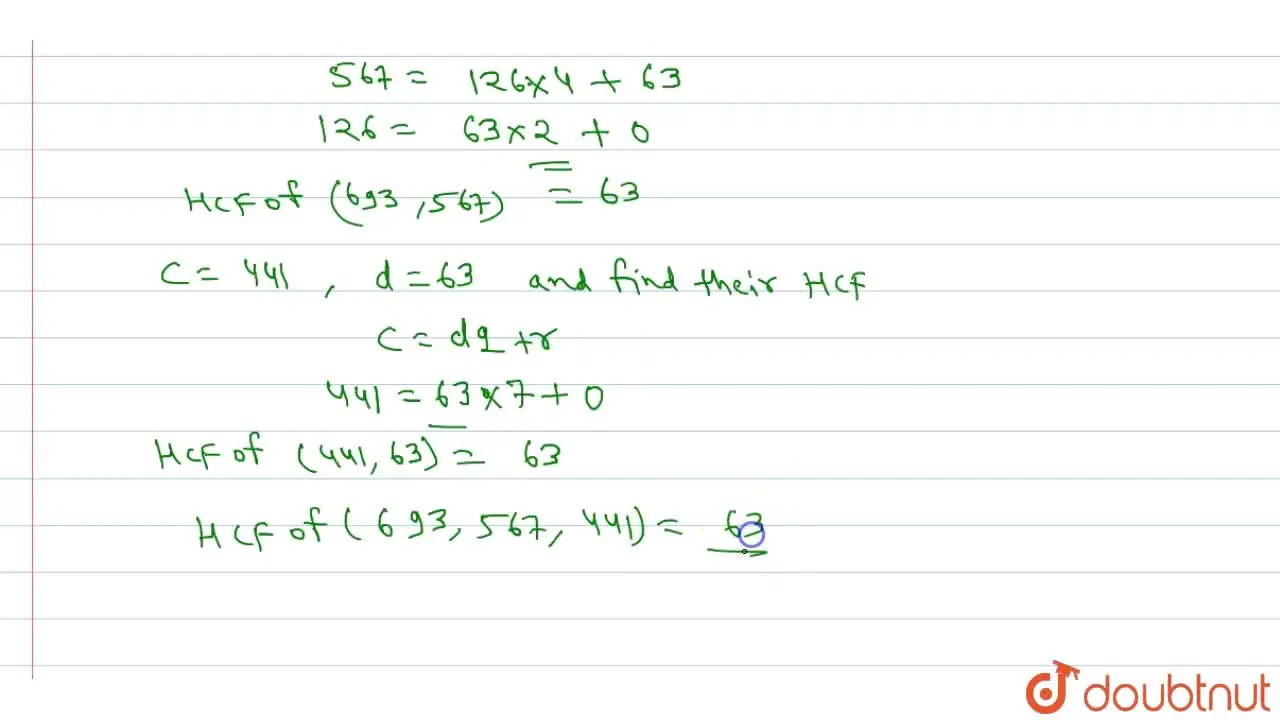 567 = 126×4 + 63
126 = 63×2 + 0
HCF of (693, 567) = 63
C = 441, d = 63 and find their HCF
C = dq + r
441 = 63×7 + 0
HCF of (441, 63) = 63
HCF of (693, 567, 441) = 63
doubtnut